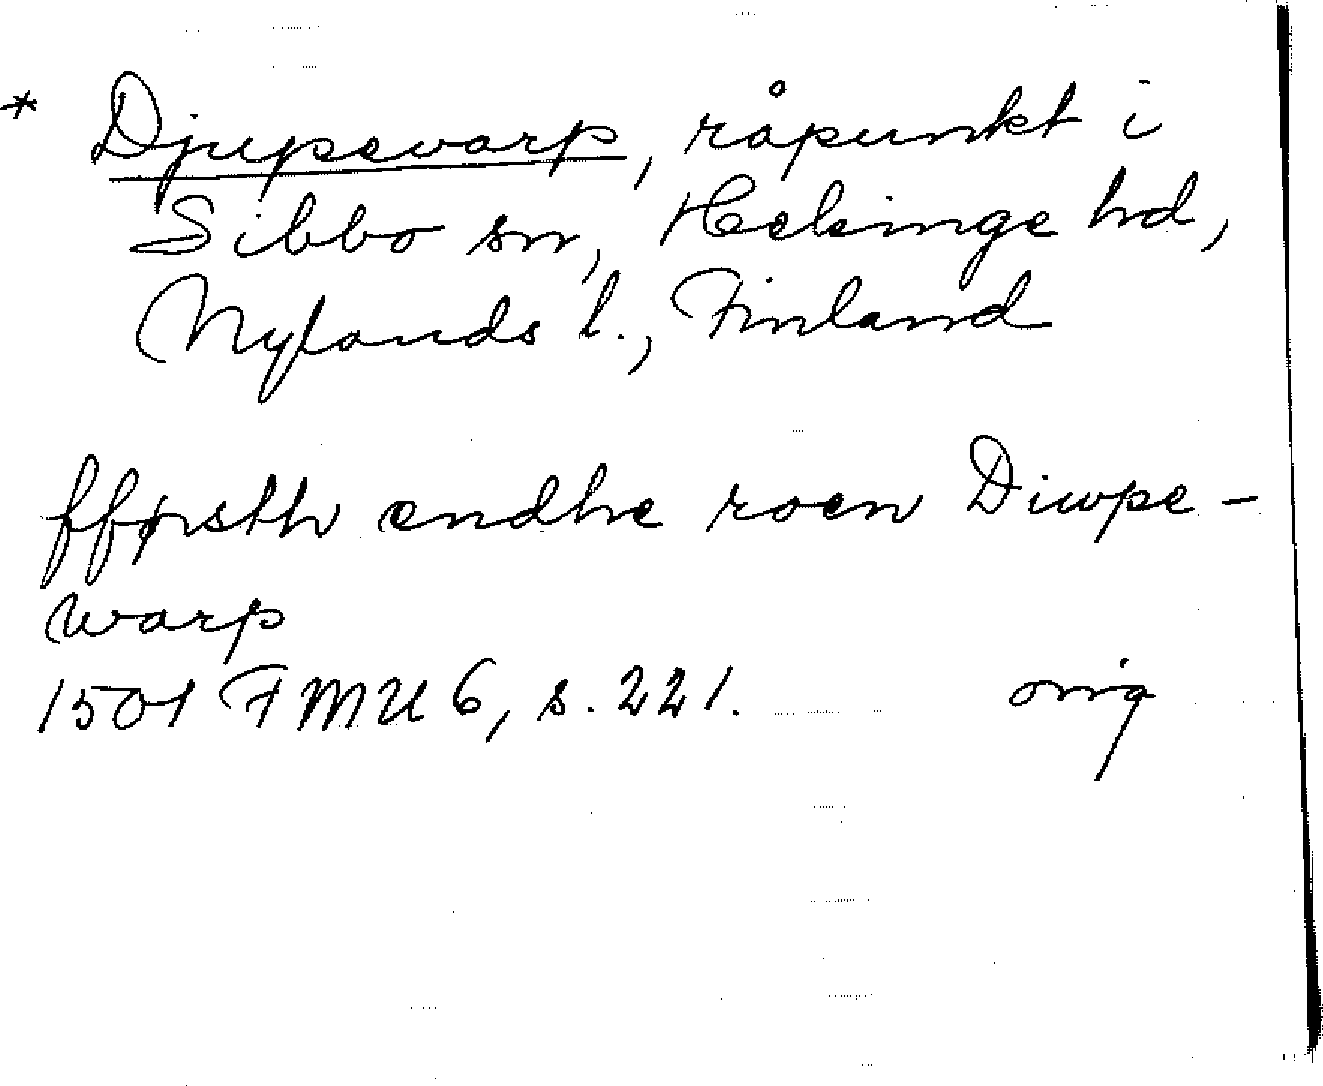 * Djupsvarp, råpunkt i
Sibbo sn, Helsinge hd,
Nylands l., Finland
fførsth endhe roen Diwpe-
warp
1501 FMU 6, s. 221. orig